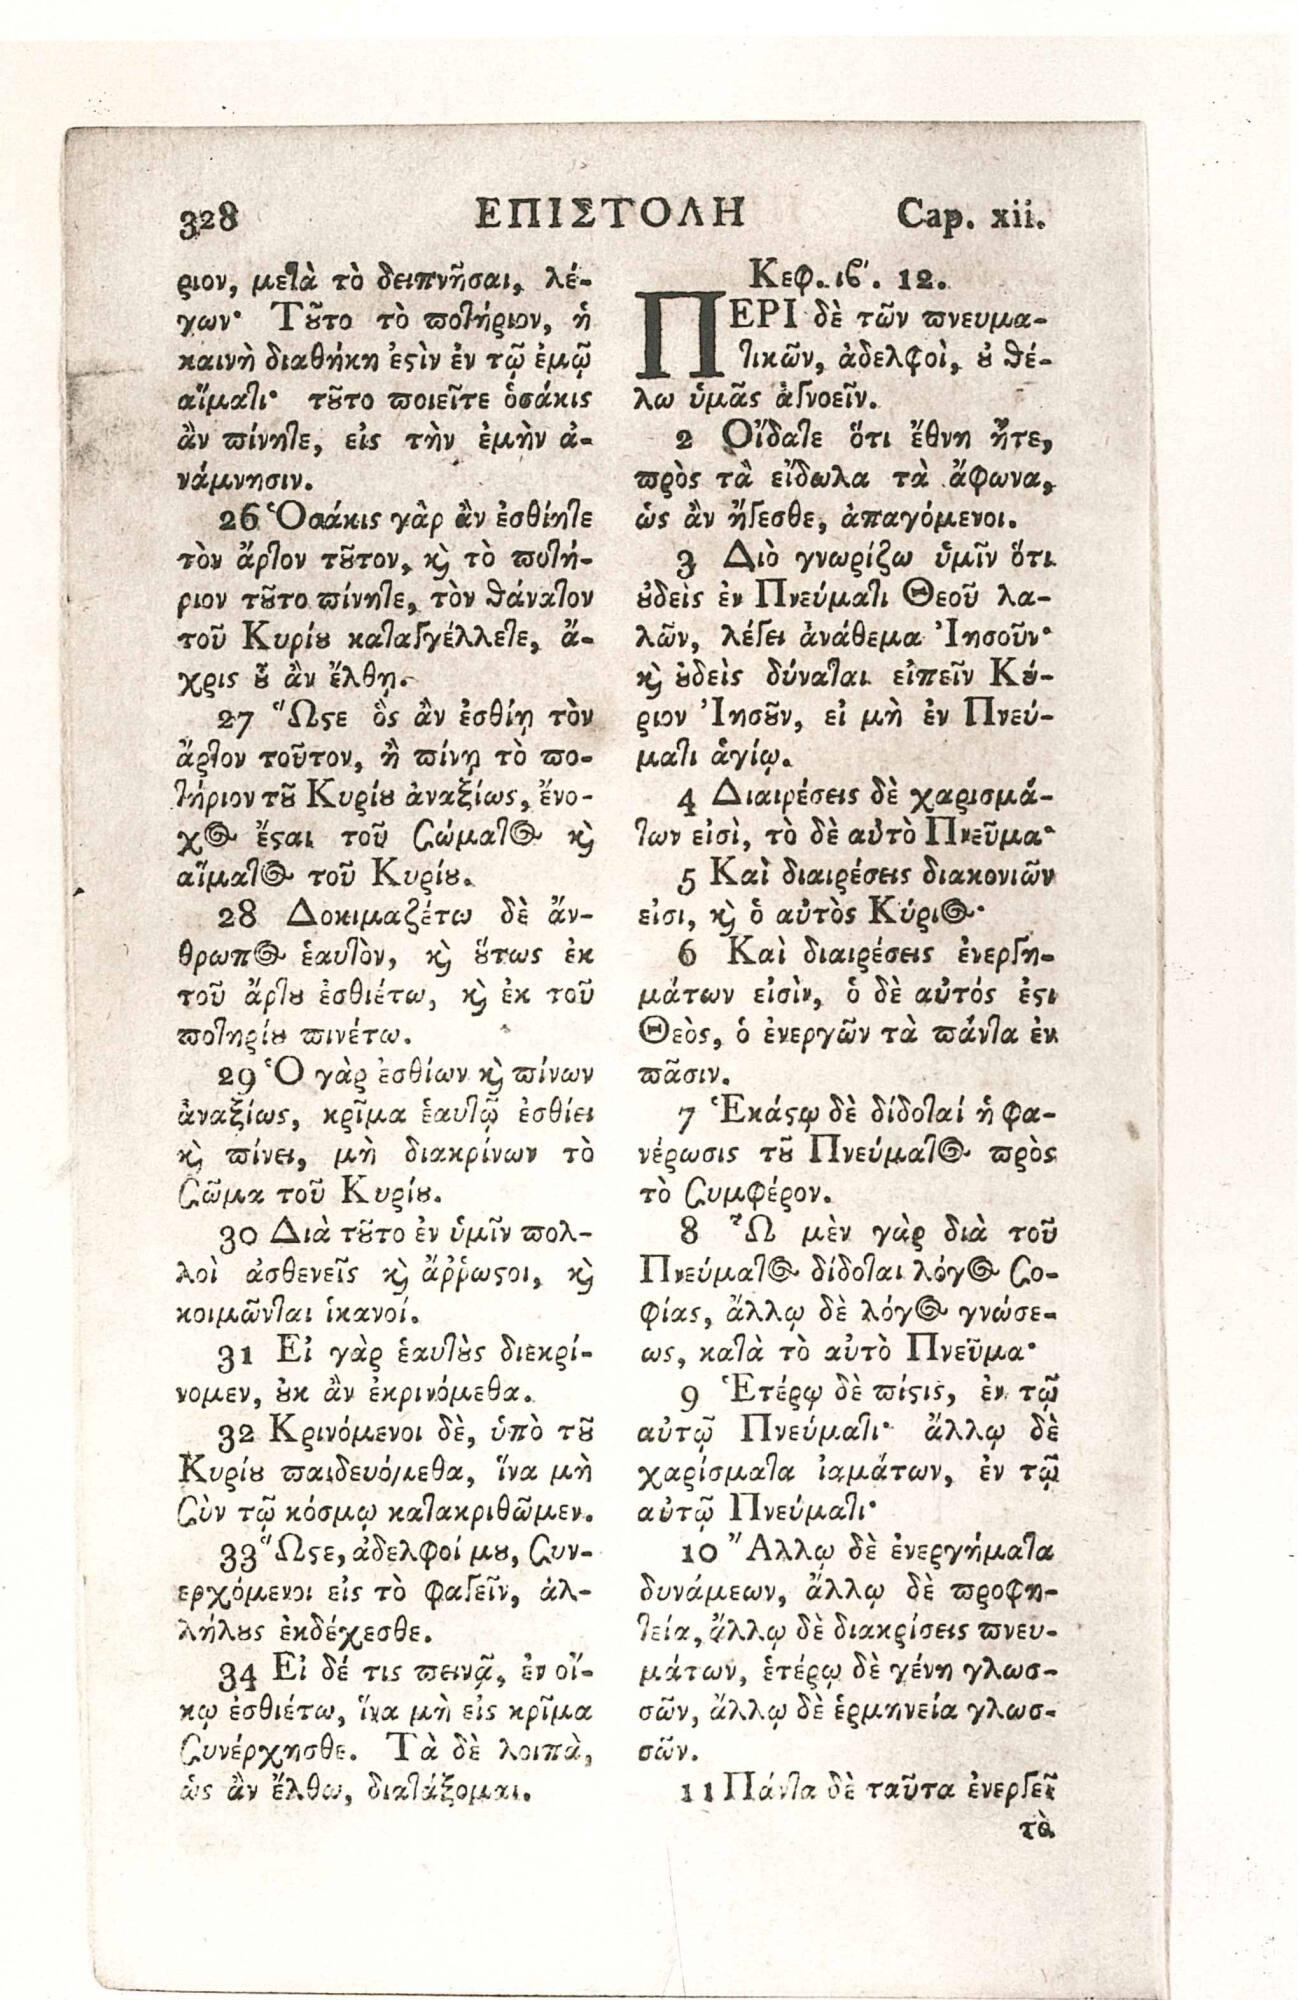 328 ΕΠΙΣΤΟΛΗ Cap. xii.
ριον, μετὰ τὸ δειπνῆσαι, λέ-
γων· Τȣ͂το τὸ ϖοτήριον, ἡ
καινὴ διαθήκη ἐϛὶν ἐν τῷ ἐμῷ
αἵματι· τȣ͂το ϖοιεῖτε ὁσάκις
ἂν ϖίνητε, εἰς τὴν ἐμὴν ἀ-
νάμνησιν.
26 Ὁσάκις γὰρ ἂν ἐσθίητε
τὸν ἄρτον τȣ͂τον, ϗ̀ τὸ ϖοτή-
ριον τȣ͂το ϖίνητε, τὸν θάνατον
τοῦ Κυρίȣ καταγγέλλετε, ἄ-
χρις ȣ͗͂ ἂν ἔλθῃ.
27 Ὥϛε ὃς ἂν ἐσθίῃ τὸν
ἄρτον τοῦτον, ἢ ϖίνῃ τὸ ϖο-
τήριον τȣ͂ Κυρίȣ ἀναξίως, ἔνο-
χος ἔϛαι τοῦ σώματος ϗ̀
αἵματος τοῦ Κυρίȣ.
28 Δοκιμαζέτω δὲ ἄν-
θρωπος ἑαυτὸν, ϗ̀ ȣ̔́τως ἐκ
τοῦ ἄρτȣ ἐσθιέτω, ϗ̀ ἐκ τοῦ
ϖοτηρίȣ ϖινέτω.
29 Ὁ γὰρ ἐσθίων ϗ̀ ϖίνων
ἀναξίως, κρῖμα ἑαυτῷ ἐσθίει
ϗ̀ ϖίνει, μὴ διακρίνων τὸ
σῶμα τοῦ Κυρίȣ.
30 Διὰ τȣ͂το ἐν ὑμῖν ϖολ-
λοὶ ἀσθενεῖς ϗ̀ ἄῤῥωϛοι, ϗ̀
κοιμῶνται ἱκανοί.
31 Εἰ γὰρ ἑαυτȣ̀ς διεκρί-
νομεν, ȣ̓κ ἂν ἐκρινόμεθα.
32 Κρινόμενοι δὲ, ὑπὸ τȣ͂
Κυρίȣ ϖαιδευόμεθα, ἵνα μὴ
σὺν τῷ κόσμῳ κατακριθῶμεν.
33 Ὥϛε, ἀδελφοί μȣ, συν-
ερχόμενοι εἰς τὸ φαγεῖν, ἀλ-
λήλȣς ἐκδέχεσθε.
34 Εἰ δέ τις ϖεινᾷ, ἐν οἴ-
κῳ ἐσθιέτω, ἵνα μὴ εἰς κρῖμα
συνέρχησθε. Τὰ δὲ λοιπὰ,
ὡς ἂν ἔλθω, διατάξομαι.
Κεφ. ιϐʹ. 12.
ΠΕΡΙ δὲ τῶν ϖνευμα-
τικῶν, ἀδελφοὶ, ȣ̓ θέ-
λω ὑμᾶς ἀγνοεῖν.
2 Οἴδατε ὅτι ἔθνη ἦτε,
ϖρὸς τὰ εἴδωλα τὰ ἄφωνα,
ὡς ἂν ἤγεσθε, ἀπαγόμενοι.
3 Διὸ γνωρίζω ὑμῖν ὅτι
ȣ̓δεὶς ἐν Πνεύματι Θεοῦ λα-
λῶν, λέγει ἀνάθεμα Ἰησοῦν·
ϗ̀ ȣ̓δεὶς δύναται εἰπεῖν Κύ-
ριον Ἰησȣ͂ν, εἰ μὴ ἐν Πνεύ-
ματι ἁγίῳ.
4 Διαιρέσεις δὲ χαρισμά-
των εἰσὶ, τὸ δὲ αὐτὸ Πνεῦμα·
5 Καὶ διαιρέσεις διακονιῶν
εἰσι, ϗ̀ ὁ αὐτὸς Κύριος·
6 Καὶ διαιρέσεις ἐνεργη-
μάτων εἰσὶν, ὁ δὲ αὐτός ἐϛι
Θεὸς, ὁ ἐνεργῶν τὰ ϖάντα ἐν
ϖᾶσιν.
7 Ἑκάϛῳ δὲ δίδοταί ἡ φα-
νέρωσις τȣ͂ Πνεύματος ϖρὸς
τὸ συμφέρον.
8 Ὧ μὲν γὰρ διὰ τοῦ
Πνεύματος δίδοται λόγος σο-
φίας, ἄλλῳ δὲ λόγος γνώσε-
ως, κατὰ τὸ αὐτὸ Πνεῦμα·
9 Ἑτέρῳ δὲ ϖίϛις, ἐν τῷ
αὐτῷ Πνεύματι· ἄλλῳ δὲ
χαρίσματα ἰαμάτων, ἐν τῷ
αὐτῷ Πνεύματι·
10 Ἄλλῳ δὲ ἐνεργήματα
δυνάμεων, ἄλλῳ δὲ ϖροφη-
τεία, ἄλλῳ δὲ διακρίσεις ϖνευ-
μάτων, ἑτέρῳ δὲ γένη γλωσ-
σῶν, ἄλλῳ δὲ ἑρμηνεία γλωσ-
σῶν.
11 Πάντα δὲ ταῦτα ἐνεργεῖ
τὸ